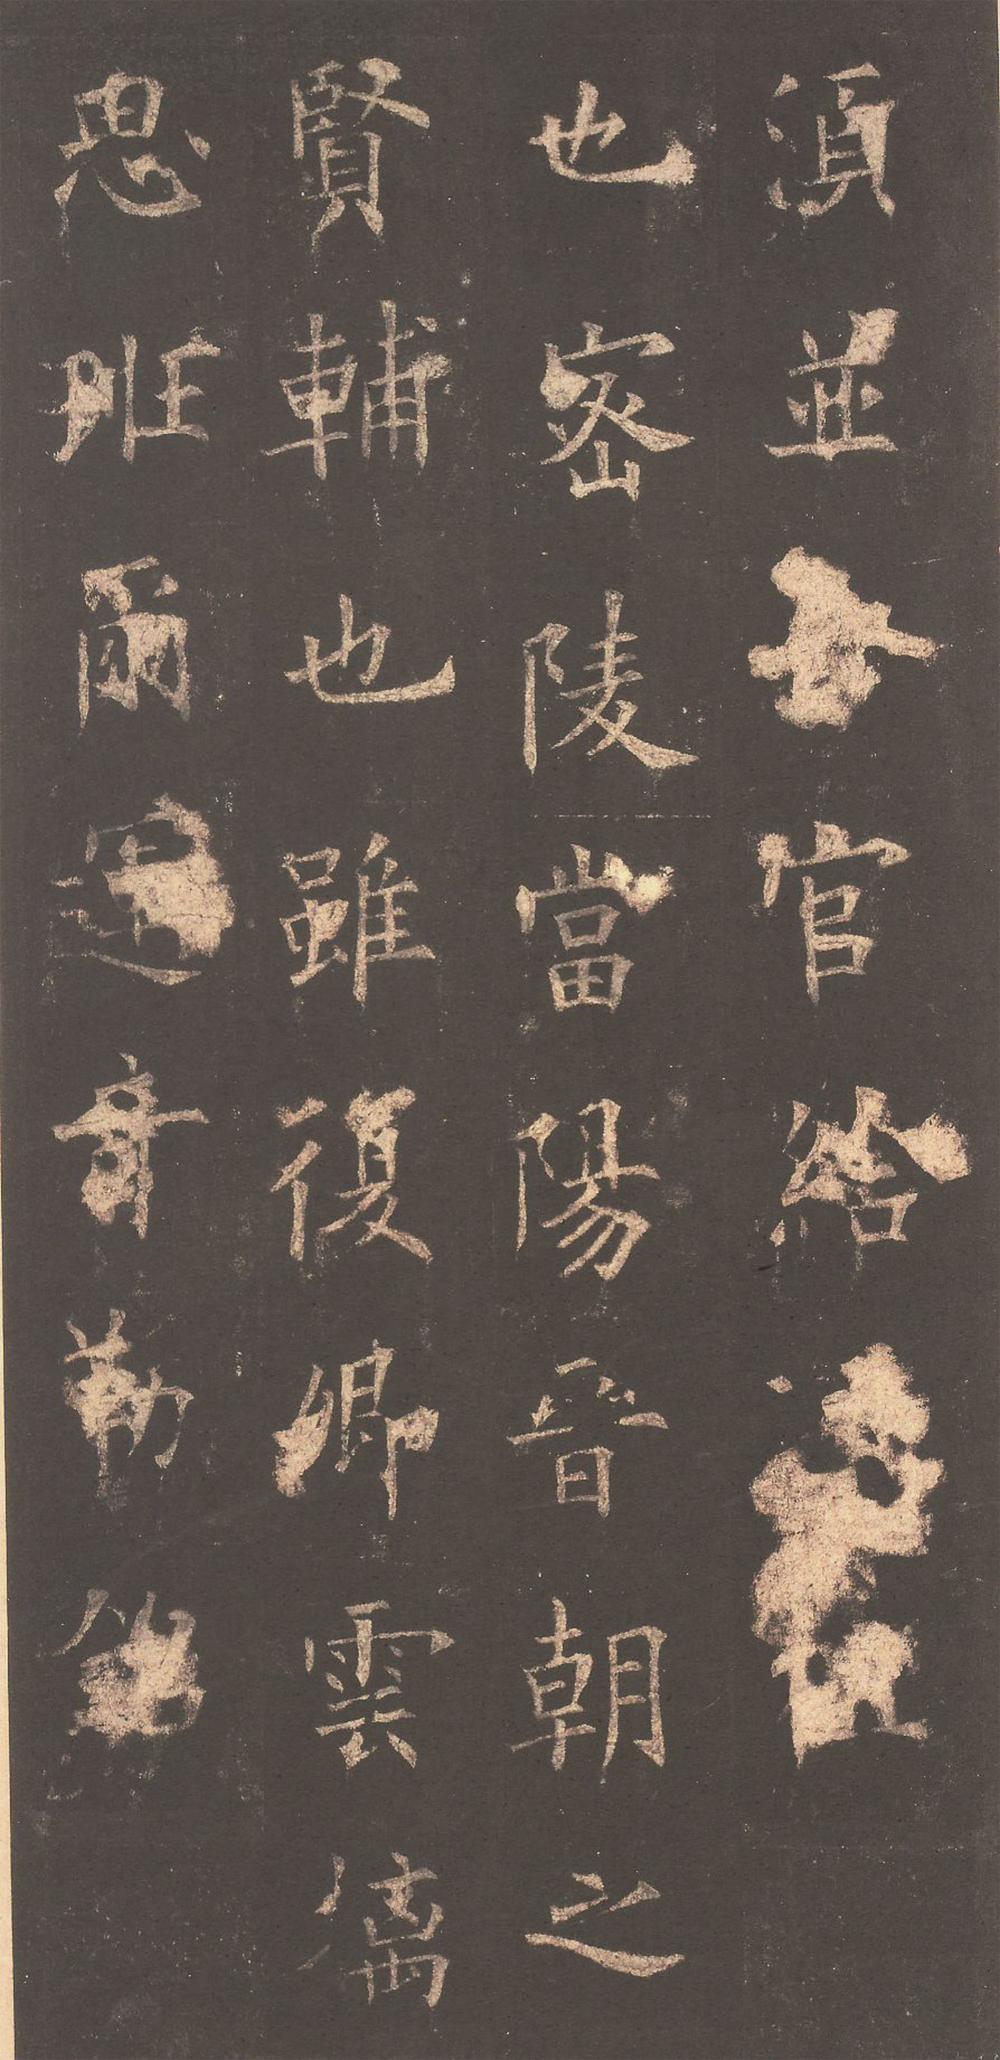 湏並官給
也密陵當陽晉朝之
賢輔也雖復卿雲儁
思班爾章勒